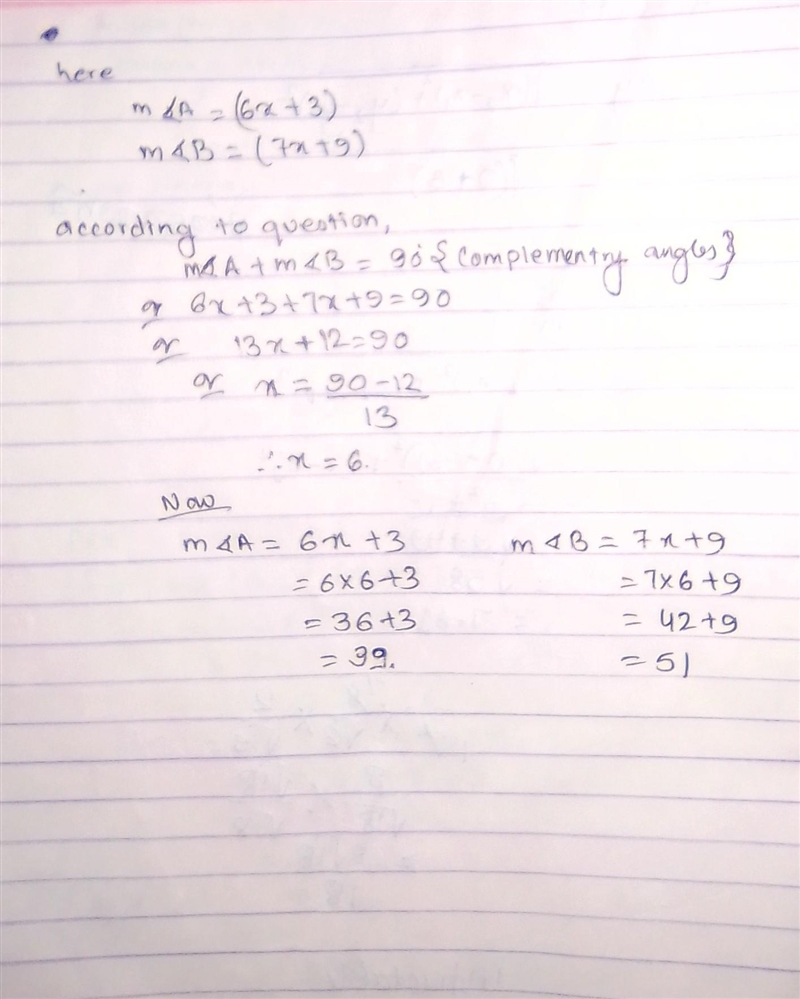 here
m∡A = (6x+3)
m∡B = (7x+9)
according to question,
m∡A + m∡B = 90° {complementry angles}
or 6x+3+7x+9=90
or 13x+12=90
or x = 90-12
13
∴x = 6.
Now
m∡A = 6x+3 m∡B = 7x+9
= 6×6+3 = 7×6+9
= 36+3 = 42+9
= 39. = 51